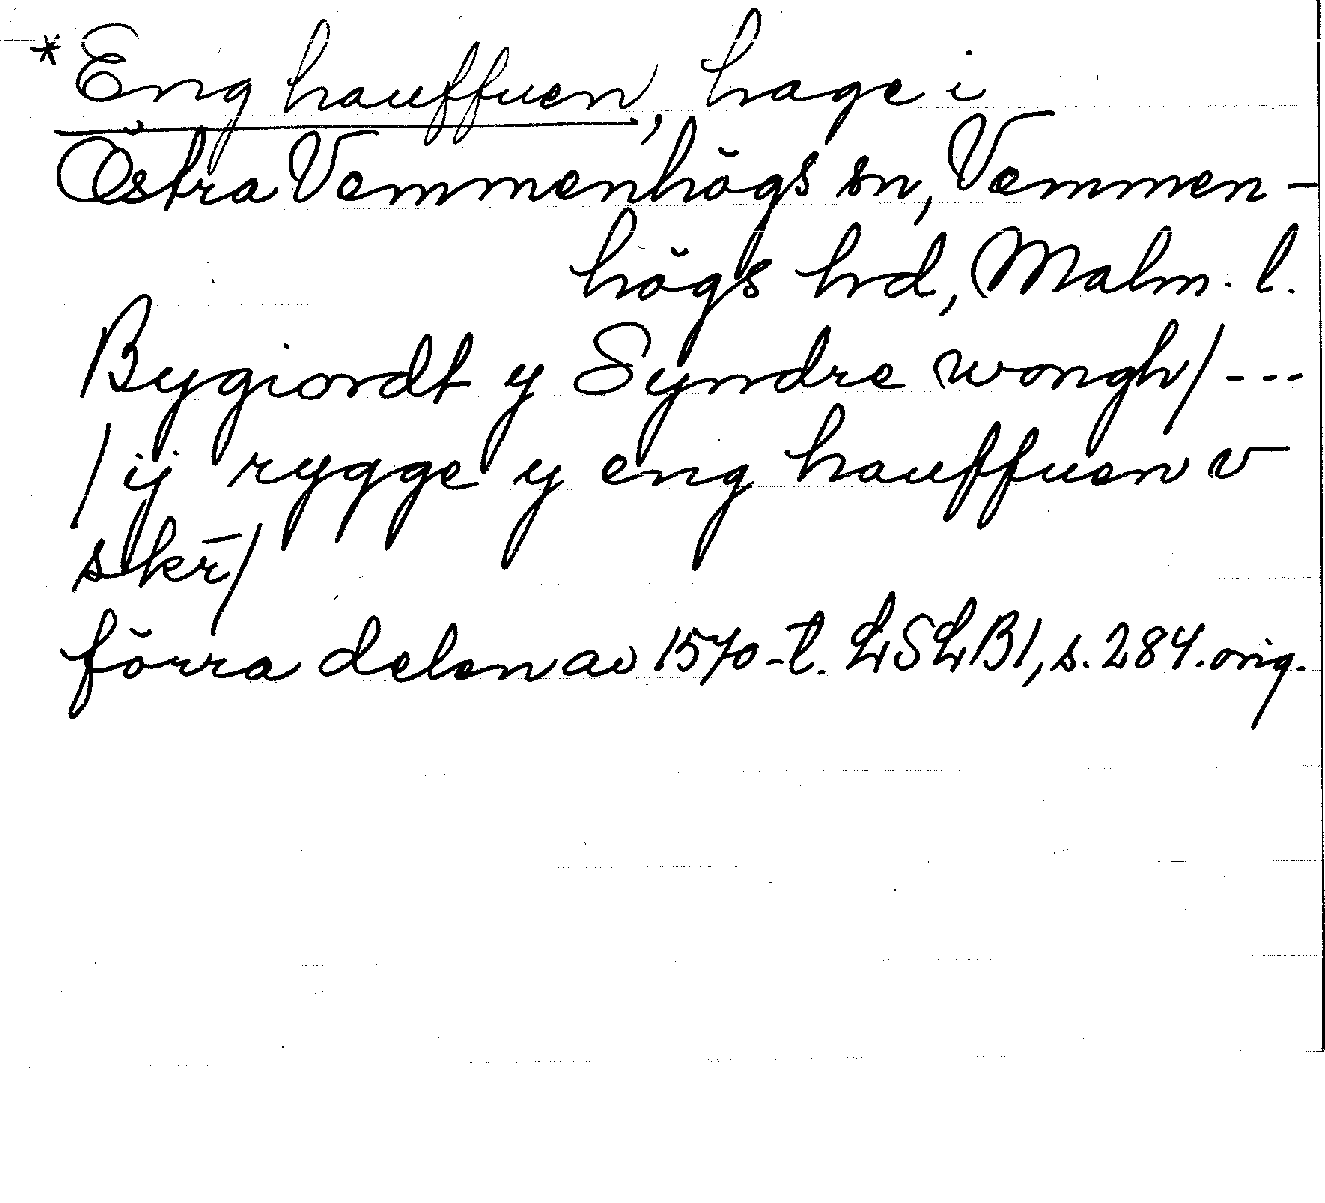 *Eng hauffuen, hage i
Östra Vemmenhögs sn, Vemmen-
högs hd, Malm. l.
Bygiordt y Syndre wongh/ ---
/ ij rygge y eng hauffuen v
skr̄/
förra delen av 1570-t. LSLB1, s. 284. orig.